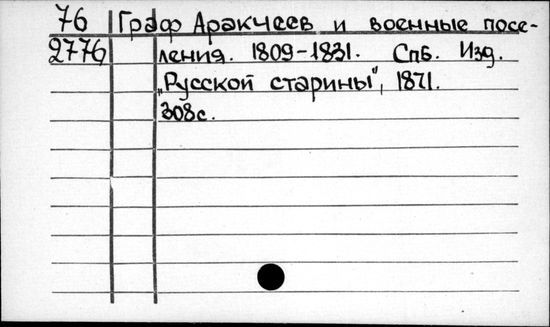 76 Граф Аракчеев и военные посе-
2776 ления. 1809-1831. Спб. Изд.
„Русской старины", 1871.
308с.